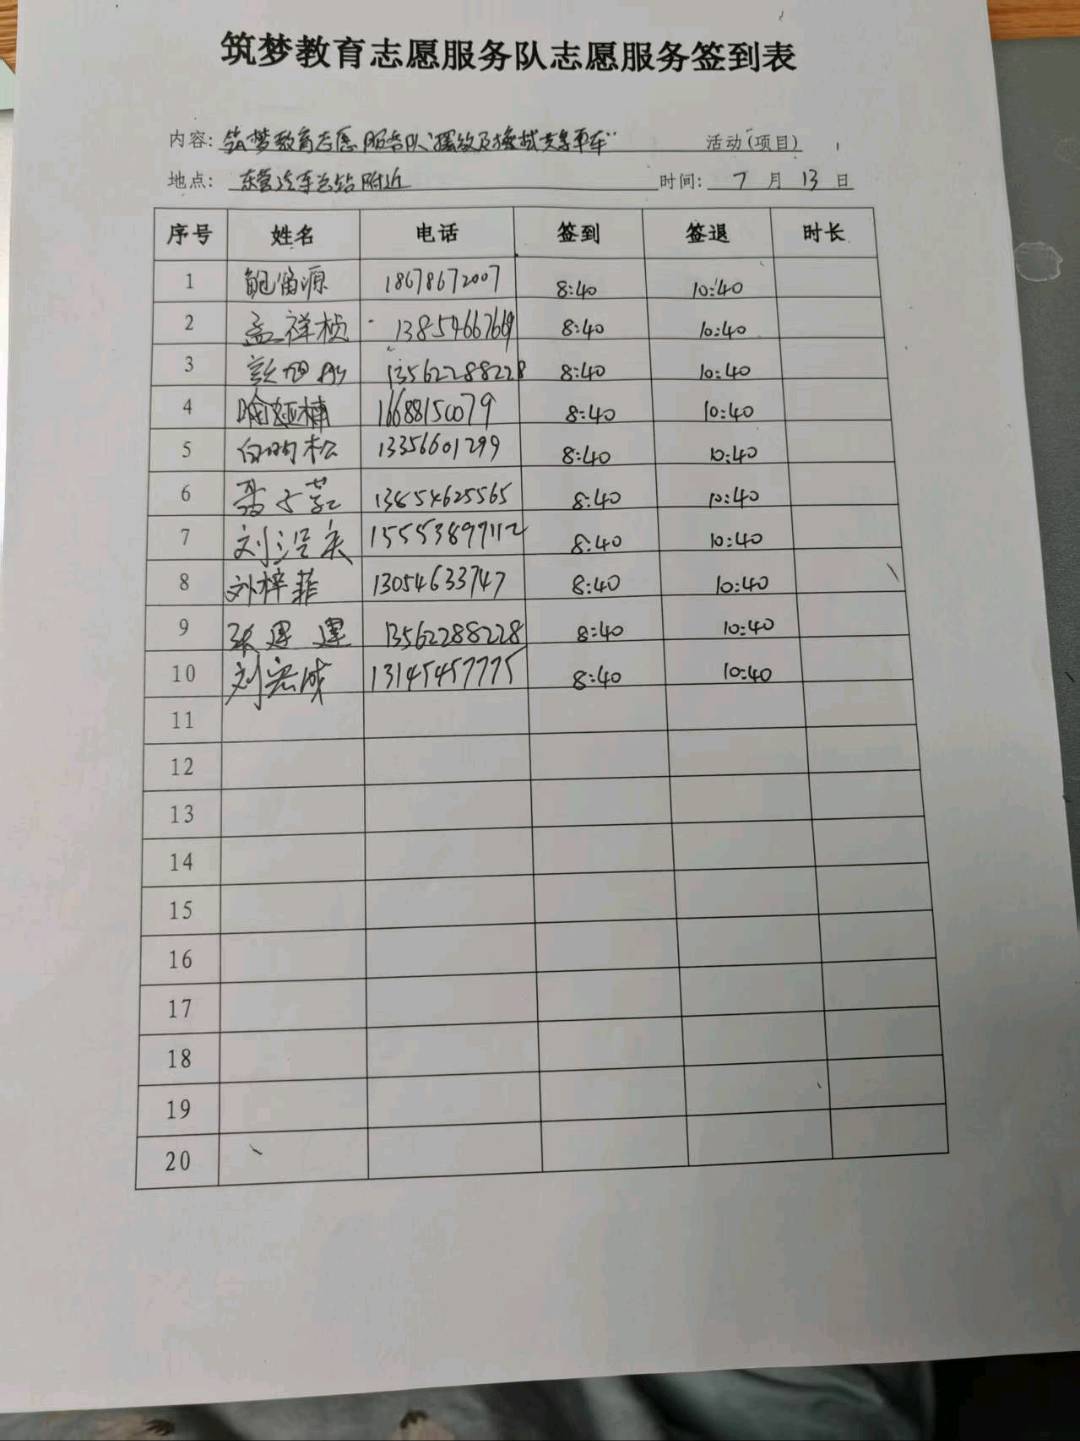 筑梦教育志愿服务队志愿服务签到表
内容: 筑梦教育志愿服务队"摆放及擦拭共享单车" 活动(项目)
地点: 东营汽车总站附近 时间: 7 月 13 日
序号 姓名 电话 签到 签退 时长
1 鲍富源 18678672007 8:40 10:40
2 孟祥桢 13854667669 8:40 10:40
3 13562288228 8:40 10:40
4 喻娅楠 16688150079 8:40 10:40
5 松 13356601299 8:40 10:40
6 13854625565 8:40 10:40
7 刘 15553897112 8:40 10:40
8 刘梓菲 13054633747 8:40 10:40
9 张 13562288228 8:40 10:40
10 刘宏成 13145457775 8:40 10:40
11
12
13
14
15
16
17
18
19
20